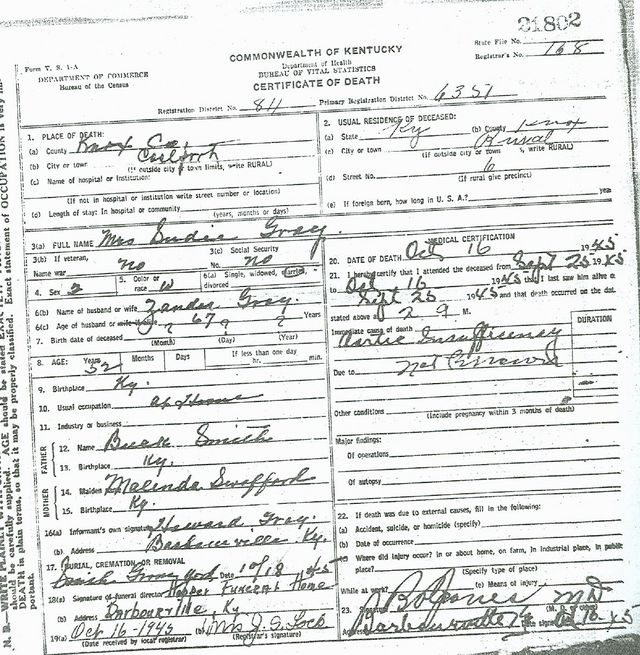 21802
State File No.
Form V. S. 1-A
COMMONWEALTH OF KENTUCKY
Registrar's No. 168
DEPARTMENT OF COMMERCE
Bureau of the Census
Department of Health
BUREAU OF VITAL STATISTICS
CERTIFICATE OF DEATH
Registration District No. 811 Primary Registration District No. 6351
1. PLACE OF DEATH:
(a) County Knox Co.
(b) City or town
(If outside city or town limits, write RURAL)
(c) Name of hospital or institution:
(If not in hospital or institution write street number or location)
(d) Length of stay: In hospital or community
(years, months or days)
2. USUAL RESIDENCE OF DECEASED:
(a) State Ky (b) County Knox
(c) City or town Rural
(If outside city or town s, write RURAL)
(d) Street No. 6
(If rural give precinct)
(e) If foreign born, how long in U. S. A.? year
3(a) FULL NAME Mrs Gray
3(b) If veteran, 3(c) Social Security
Name war no No. no
4. Sex 2 5. Color or race W 6(a) Single, widowed, married, divorced
6(b) Name of husband or wife Zander Gray
6(c) Age of husband or wife if alive 67 Years
7. Birth date of deceased ? ? ?
(Month) (Day) (Year)
8. AGE: Years 52 Months Days If less than one day
hr. min.
9. Birthplace Ky.
10. Usual occupation at Home
11. Industry or business
FATHER
12. Name Smith
13. Birthplace Ky.
MOTHER
14. Maiden Malinda Swafford
15. Birthplace Ky.
16(a) Informant's own signature Howard Gray
(b) Address Barbourville, Ky.
17. BURIAL, CREMATION, OR REMOVAL
Grave yard Date 10/18 1945
18(a) Signature of funeral director Hopper Funeral Home
(b) Address Barbourville, Ky.
19(a) Oct 16-1945 (b) Mrs J. S. Lock
(Date received by local registrar) (Registrar's signature)
MEDICAL CERTIFICATION
20. DATE OF DEATH Oct 16 1945
21. I hereby certify that I attended the deceased from Sept 25 1945
to Oct 16 1945 that I last saw him alive on
Sept 25 1945 and that death occurred on the date
stated above at 2 9 M.
Immediate cause of death DURATION
Aortic Insufficiency
Due to
Other conditions
(Include pregnancy within 3 months of death)
Major findings:
Of operations
Of autopsy
22. If death was due to external causes, fill in the following:
(a) Accident, suicide, or homicide (specify)
(b) Date of occurrence
(c) Where did injury occur? In or about home, on farm, in industrial place, in public
place?
(Specify type of place)
While at work? (e) Means of injury
23. Signature Jones MD
Address Barbourville Ky Date signed Oct 16-45
N. B.—WRITE PLAINLY WITH
should be carefully supplied. AGE should be stated EXACTLY.
DEATH in plain terms, so that it may be properly classified. Exact statement of OCCUPATION is very im-
portant.